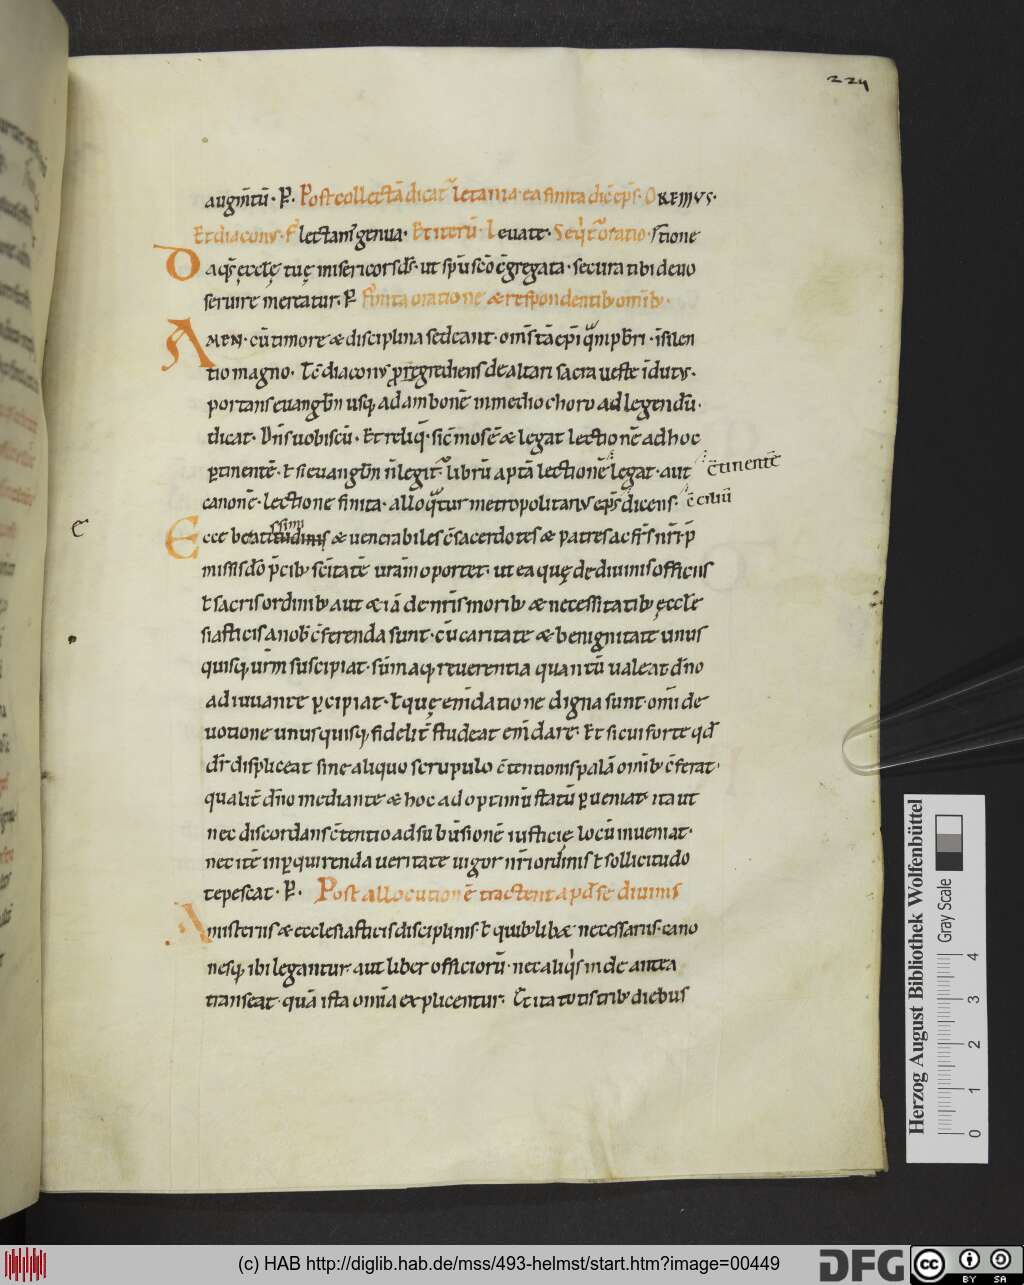 224
augm̄tū · P̄ · Post collectā dicat letania · ea finita dic̄ ep̄s · OREMUS ·
Et diaconus · flectam' genua · Et iterū · Levate · Seq't' oratio · stione
Da qs̄ ęccl̄ę tuę misericors ds̄ · ut sp̄u sc̄o c̄gregata · secura tibi devo
servire mereatur · P̄ Finita oratione & respondentib' omīb' ·
AMEN · cū timore & disciplina sedeant · om̄s tā ep̄i quā p̄br̄i · ī silen
tio magno · Tc̄ diaconus p̄regrediens de altari sacra veste īdutus ·
portans evangl̄m usq; ad ambonē in medio choro ad legendū ·
dicat · Dn̄s vobiscū · Et reliq̄ · sic̄ mos ē & legat lectionē ad hoc
p̄tinentē · t̄ si evangl̄m n̄ legit' librū aptā lectionē legat · aut c̄tinentē
canonē · Lectione finita · alloquat'ur metropolitanus ep̄s dicens · c̄ciliū
Ecce beatitudinis ssimi & venerabiles c̄sacerdotes & patres ac fr̄s nr̄i · p̄
missis dō p̄cib' · sc̄itatē vrām oportet · ut ea quę de divinis officiis
t̄ sacris ordinib' aut & iā de nr̄is morib' & necessitatib' ęccl̄e
siasticis a nob̄ c̄ferenda sunt · cū caritate & benignitate unus
quisq; vr̄m suscipiat · sūmaq; reverentia quantū valeat dn̄o
adiuvante p̄cipiat · t̄ quę em̄datione digna sunt · om̄i de
votione unusquisq; fidelit̄ studeat em̄dare · Et si cui forte qd̄
dr̄ displiceat sine aliquo scrupulo c̄tentionis palā omīb' c̄ferat ·
qualit̄ dn̄o mediante & hoc ad optimū statū p̄veniat · ita ut
nec discordans c̄tentio ad subv̄sionē iusticię locū inveniat ·
nec itē inp̄quirenda veritate vigor nr̄i ordinis t̄ sollicitudo
tepescat · P̄ · Post allocutionē tractent apd̄ se divinis
ministeriis & ecclesiasticis disciplinis · t̄ quib' lib& necessariis · cano
nesq; ibi legantur · aut liber officiorū · nec aliq's inde antea
transeat · quā ista om̄ia explicentur · Et ita totis trib' diebus
Herzog August Bibliothek Wolfenbüttel
Gray Scale
0 1 2 3 4
(c) HAB http://diglib.hab.de/mss/493-helmst/start.htm?image=00449
DFG
cc BY SA